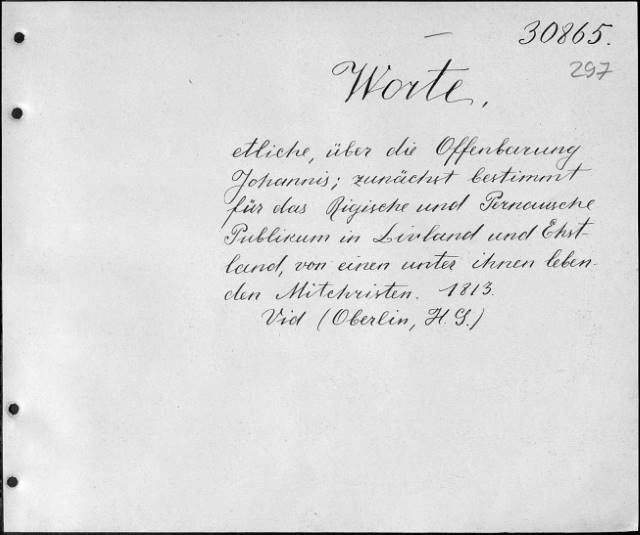 30865.
297
Worte,
etliche, über die Offenbarung
Johannis; zunächst bestimmt
für das Rigische und Pernausche
Publikum in Livland und Ehst-
land, von einen unter ihnen leben-
den Mitchristen. 1813.
Vid (Oberlin, H. G.)